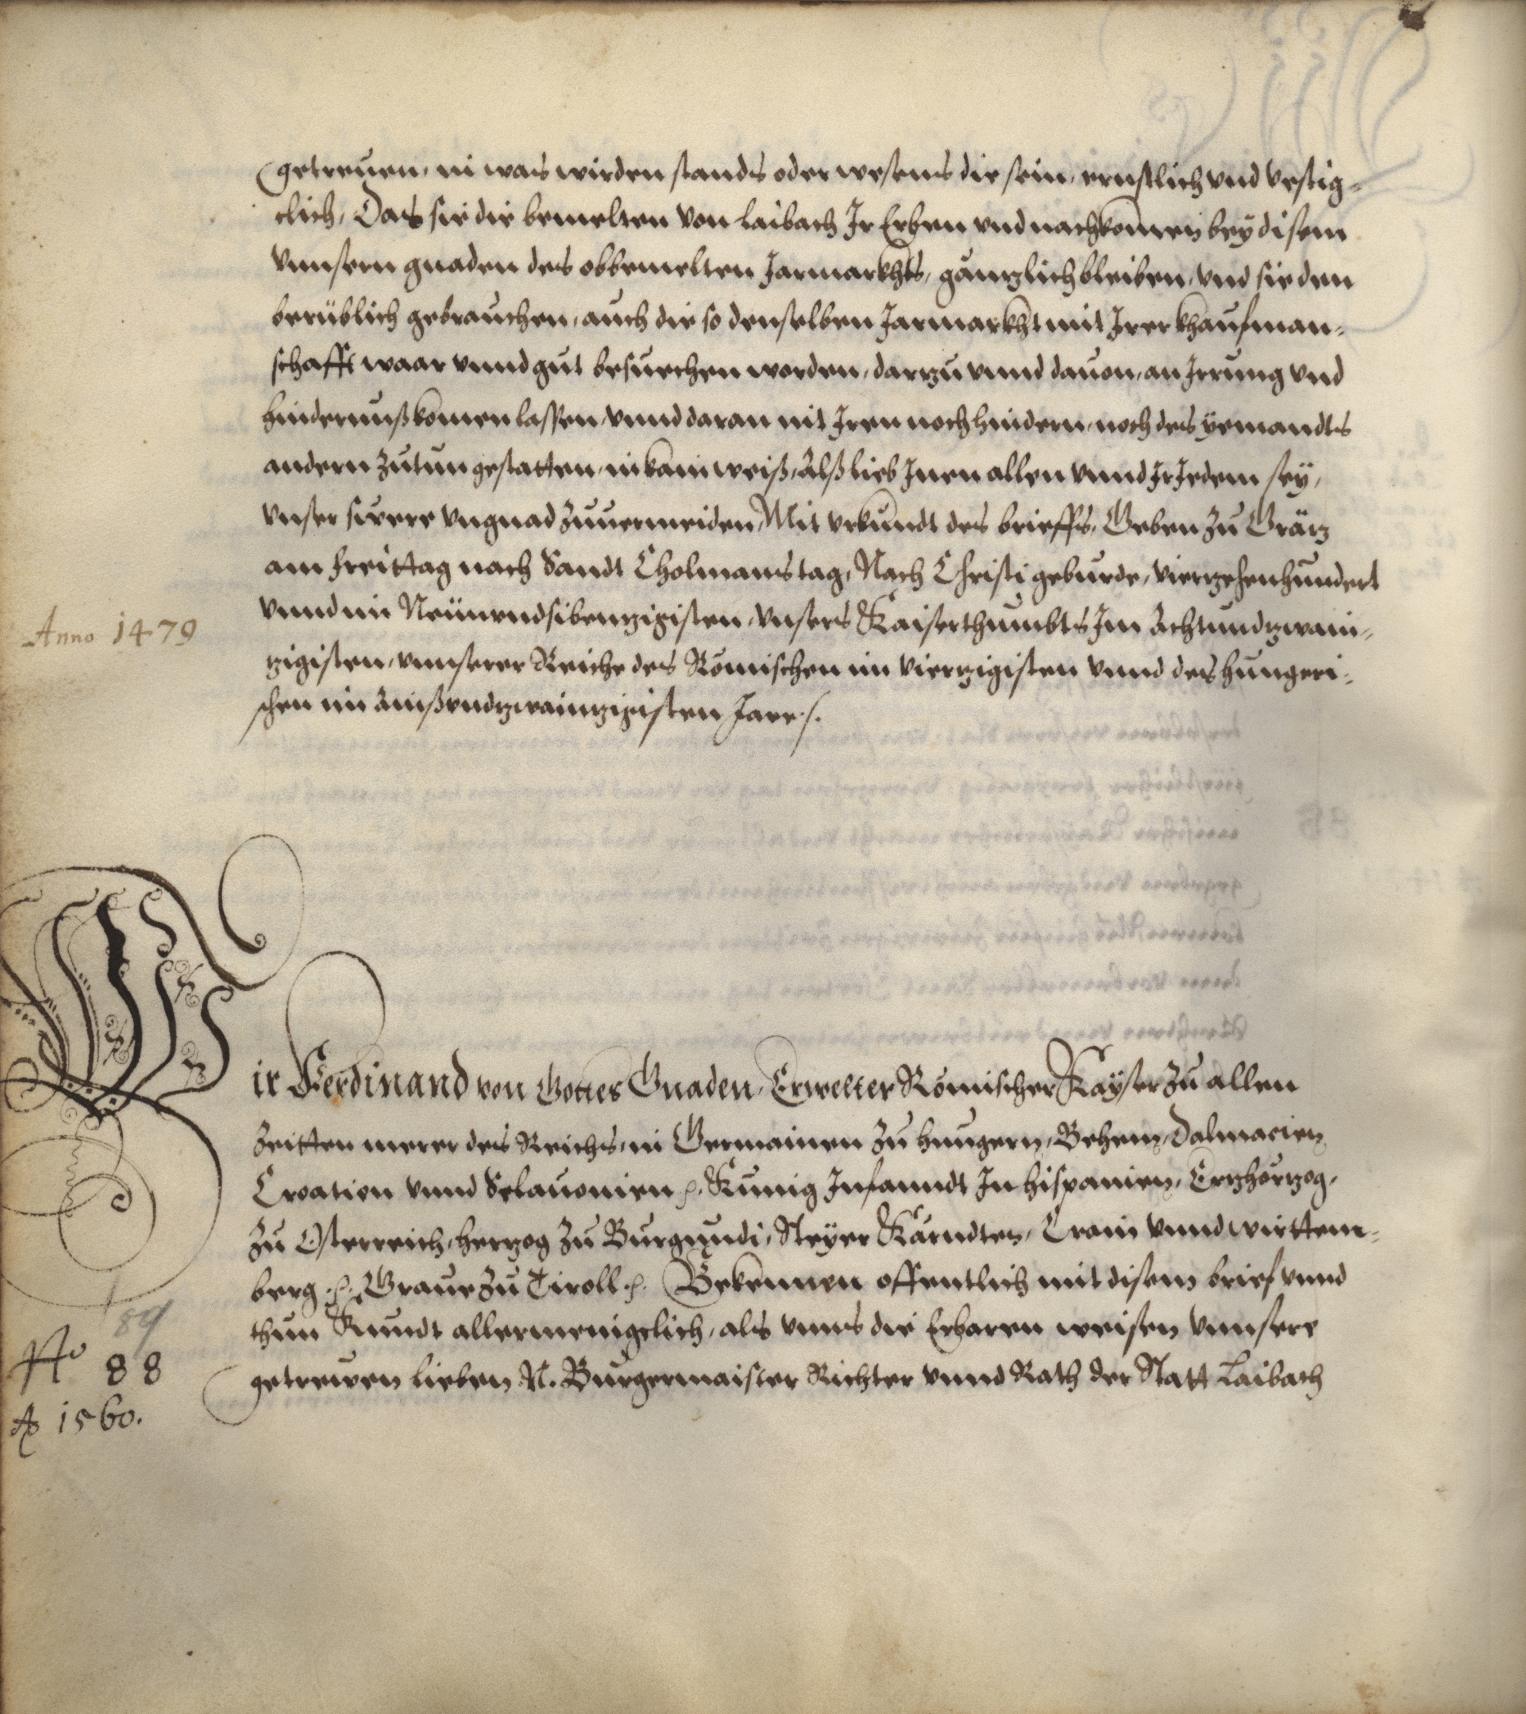 getreuen, in was wirden stands oder wesens die sein, ernstlich vnd vestig-
clich, Das sie die bemelten von Laibach Ir Erben vnd nachkomen bey disem
vnnsern gnaden des obbemelten Jarmarkhts, gänzlich bleiben, vnd sie den
berüblich gebrauchen, auch die so denselben Jarmarkht mit Irer khaufman-
schafft waar vnnd gut besuechen werden, darzu vnnd dauon, an Irrung vnd
hindernuß komen lassen, vnnd daran nit Irren noch hindern, noch des yemandts
andern zutun gestatten, in kain weiß, Alß lieb Inen allen vnnd Ir Jedem sey,
vnser swere vngnad zuuermeiden, Mit vrkundt des brieffs, Geben zu Gräz
am freittag nach Sandt Cholmans tag, Nach Christi geburde, vierzehenhundert
Anno 1479
vnnd im Neünvndsibenzigisten, vnsers Kaiserthumbts Im Achtundzwain-
zigisten, vnnserer Reiche des Römischen im vierzigisten vnnd des hungeri-
schen im Ainßvndzwainzigisten Jare ./.
Wir Ferdinand von Gottes Gnaden, Erwelter Römischer Kayser zu allen
Zeitten merer des Reichs, in Germainen zu hungern, Behem, Dalmacien
Croatien vnnd Sclauonien ꝛc. Kunig Infanndt In hispanien, Erzherzog,
zu Österreich, herzog zu Burgundi, Steyer Kärndten, Crain vnnd wirttem-
berg ꝛc. Graue zu Tiroll ꝛc. Bekennen offentlich mit disem brief vnnd
thun Kundt allermenigclich, als vnns die Erbaren weisen vnnsere
getrewen lieben N. Burgermaister Richter vnnd Rath der Statt Laibach
89
No 88
Ao 1560.